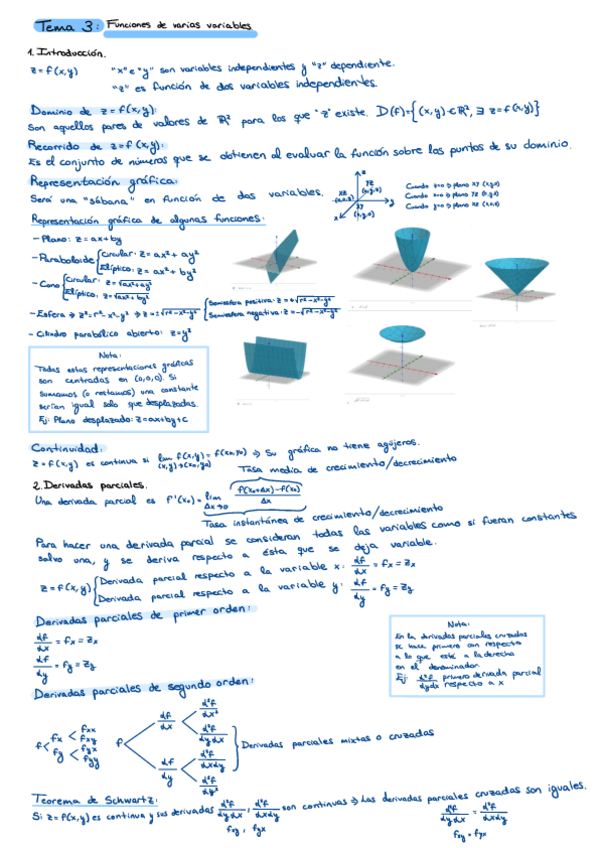 Tema 3: Funciones de varias variables
1. Introducción.
z = f(x,y) "x" e "y" son variables independientes y "z" dependiente.
"z" es función de dos variables independientes.
Dominio de z = f(x,y):
Son aquellos pares de valores de ℝ² para los que "z" existe. D(f)={(x,y) ∈ ℝ², ∃ z = f(x,y)}
Recorrido de z = f(x,y):
Es el conjunto de números que se obtienen al evaluar la función sobre los puntos de su dominio.
Representación gráfica:
Será una "sábana" en función de dos variables.
Cuando z=0 → plano XY (x,y,0)
Cuando x=0 → plano YZ (0,y,z)
Cuando y=0 → plano XZ (x,0,z)
Representación gráfica de algunas funciones:
- Plano: z = ax+by
- Paraboloide { Circular: z = ax² + ay²
Elíptico: z = ax² + by²
- Cono { Circular: z = √ax²+ay²
Elíptico: z = √ax²+by²
- Esfera → z² = r²-x²-y² → z = ±√r²-x²-y² { Semiesfera positiva: z = +√r²-x²-y²
Semiesfera negativa: z = -√r²-x²-y²
- Cilindro parabólico abierto: z = y²
Nota:
Todas estas representaciones gráficas
son centradas en (0,0,0). Si
sumamos (o restamos) una constante
serían igual solo que desplazadas.
Ej: Plano desplazado: z = ax+by+c
Continuidad:
z = f(x,y) es continua si lim (x,y)→(x₀,y₀) f(x,y) = f(x₀,y₀) → Su gráfica no tiene agujeros.
Tasa media de crecimiento/decrecimiento
2. Derivadas parciales.
Una derivada parcial es f'(x₀) = lim Δx→0 f(x₀+Δx)-f(x₀) / Δx
Tasa instantánea de crecimiento/decrecimiento
Para hacer una derivada parcial se consideran todas las variables como si fueran constantes
salvo una, y se deriva respecto a ésta que se deja variable.
z = f(x,y) { Derivada parcial respecto a la variable x: df/dx = fx = zx
Derivada parcial respecto a la variable y: df/dy = fy = zy
Derivadas parciales de primer orden:
df/dx = fx = zx
df/dy = fy = zy
Nota:
En la derivadas parciales cruzadas
se hace primero con respecto
a lo que esté a la derecha
en el denominador.
Ej: d²f/dydx primero derivada parcial
respecto a x
Derivadas parciales de segundo orden:
f < fx < fxx fxy
fy < fyx fyy
f < df/dx < d²f/dx² d²f/dydx
df/dy < d²f/dxdy d²f/dy²
} Derivadas parciales mixtas o cruzadas
Teorema de Schwartz:
Si z = f(x,y) es continua y sus derivadas d²f/dydx, d²f/dxdy son continuas → Las derivadas parciales cruzadas son iguales.
fxy, fyx
d²f/dydx = d²f/dxdy
fxy = fyx